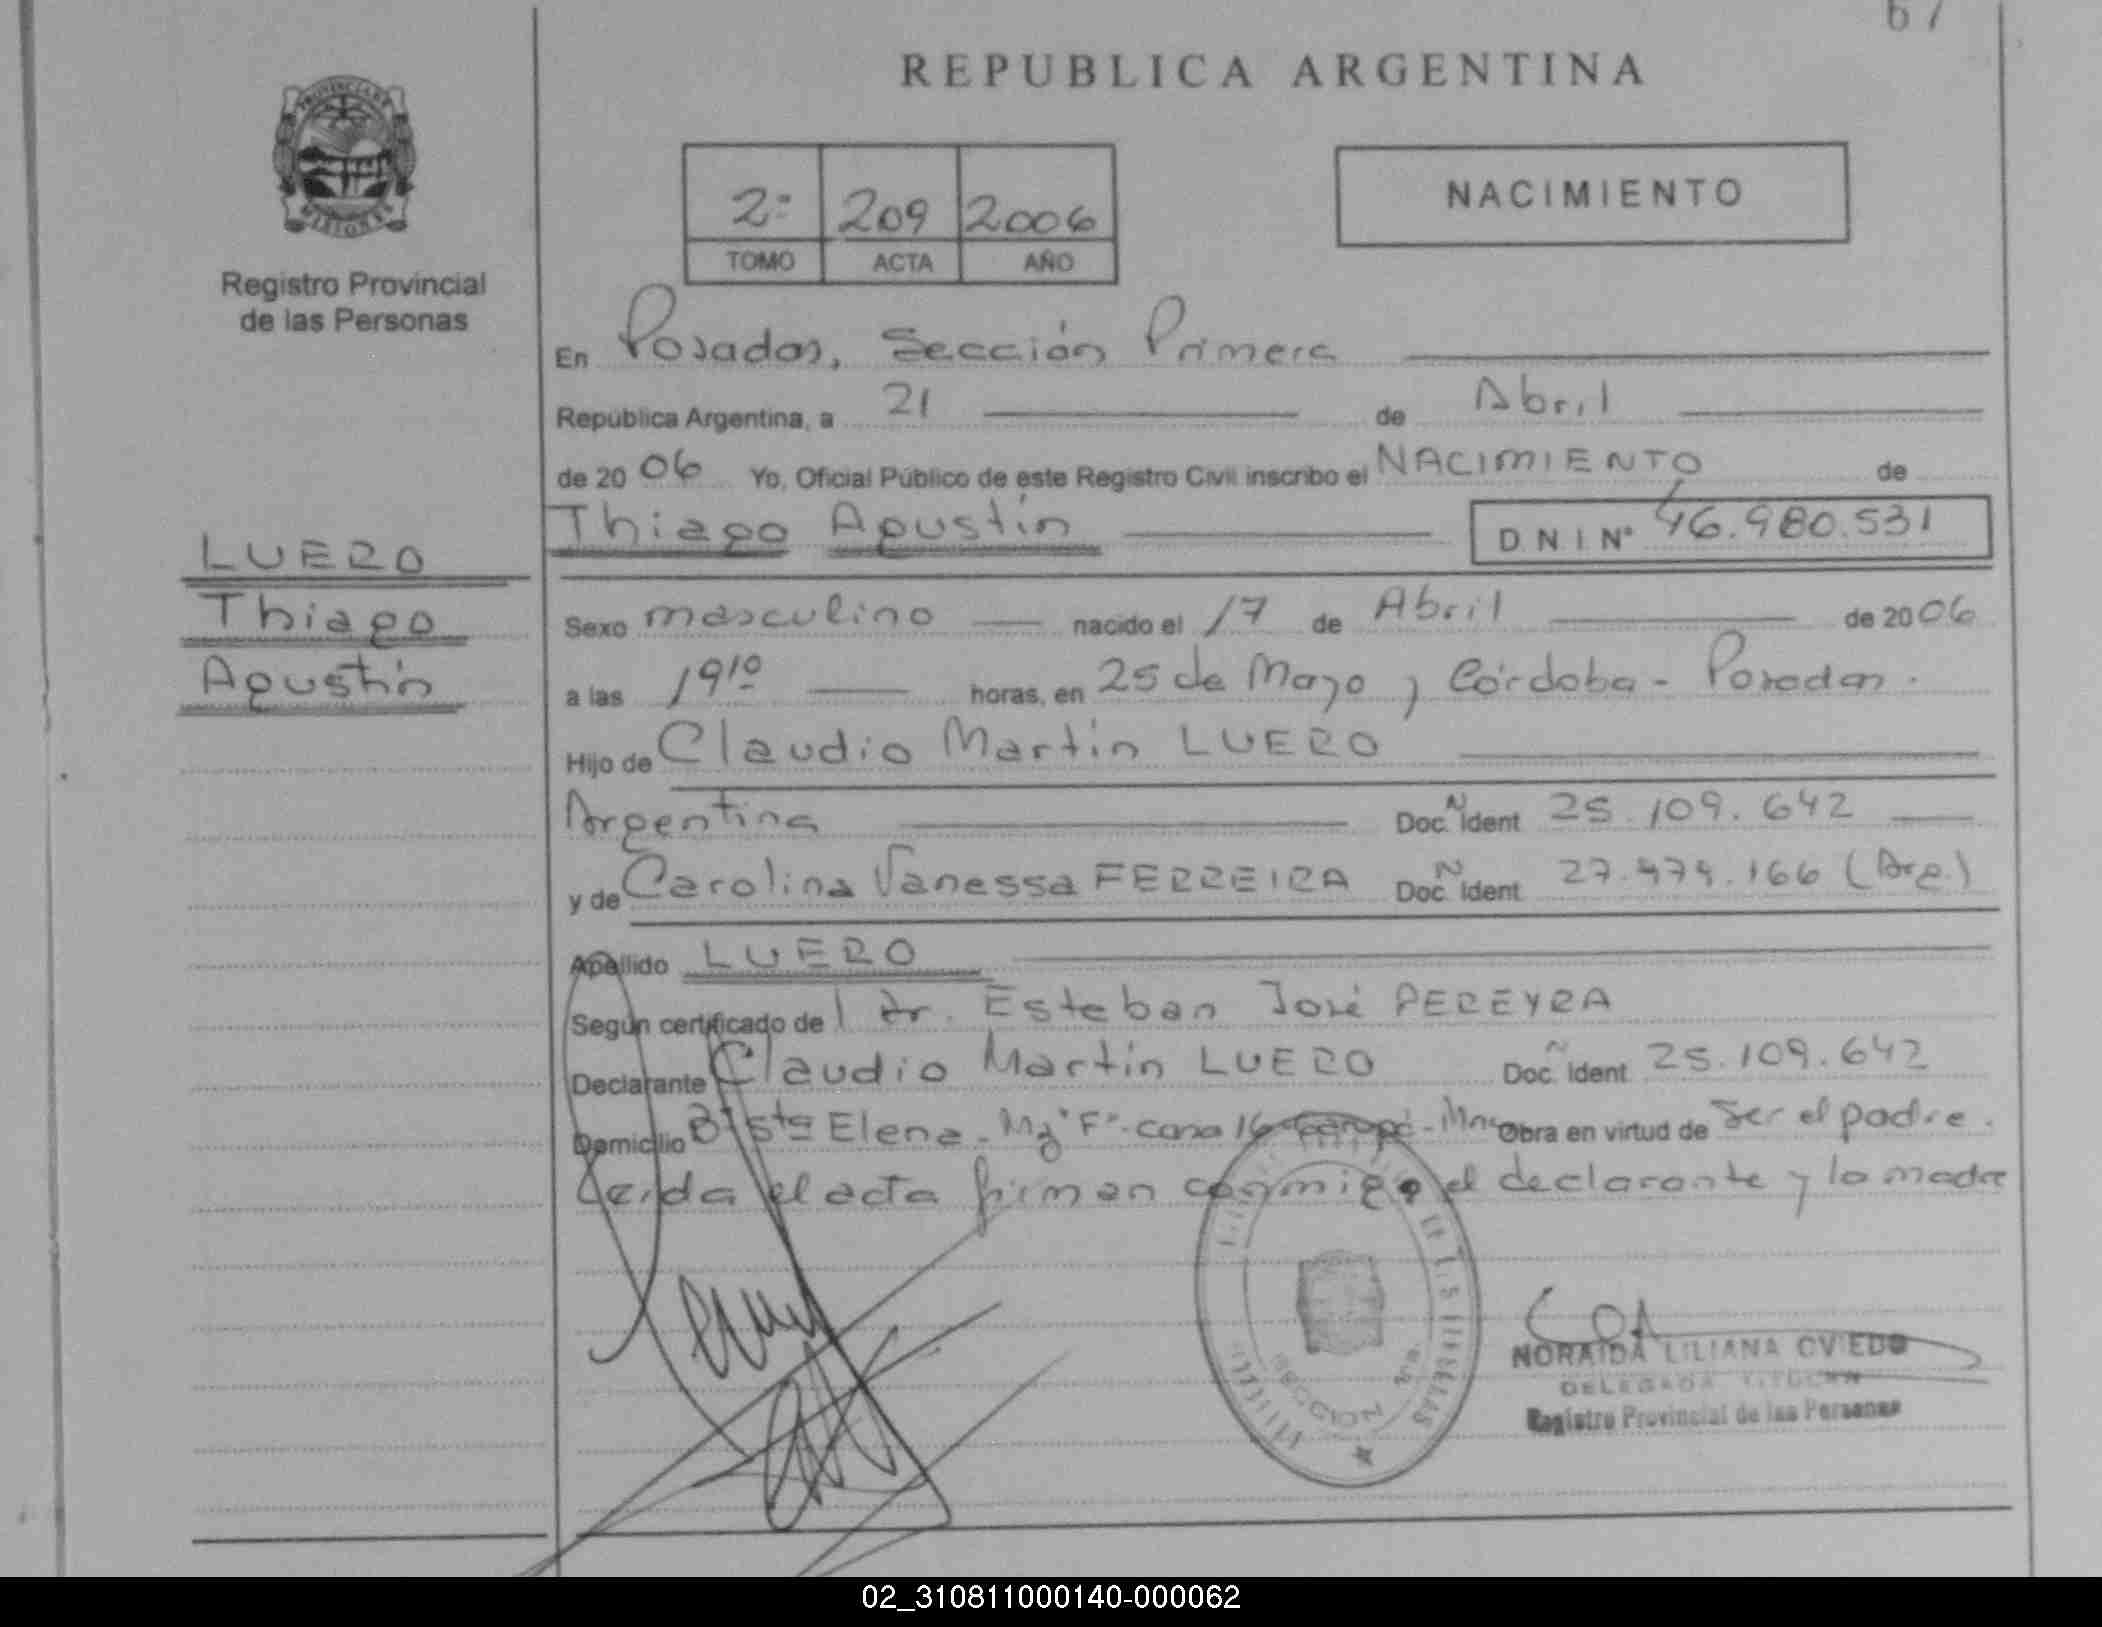 67
REPUBLICA ARGENTINA
Registro Provincial
de las Personas
2º 209 2006
TOMO ACTA AÑO
NACIMIENTO
En Posadas, Sección Primera
República Argentina, a 21 de Abril
de 2006 Yo, Oficial Público de este Registro Civil inscribo el NACIMIENTO de
Thiago Agustín D N I Nº 46.980.531
LUERO
Thiago
Agustín
Sexo masculino nacido el 17 de Abril de 2006
a las 19¹⁰ horas, en 25 de Mayo y Córdoba - Posadas.
Hijo de Claudio Martín LUERO
Argentina Doc. Ident 25.109.642
y de Carolina Vanessa FERREIRA Doc. Ident 27.474.166 (Arg.)
Apellido LUERO
Según certificado de l Dr. Esteban José PEREYRA
Declarante Claudio Martín LUERO Doc. Ident 25.109.642
Domicilio Bº Sta Elena - Mz "F" - casa 16 - Garupá - Mnes Obra en virtud de ser el padre.
Leída el acta firman conmigo el declarante y la madre
SECCION
NORAIDA LILIANA OVIEDO
DELEGADA TITULAR
Registro Provincial de las Personas
02_310811000140-000062